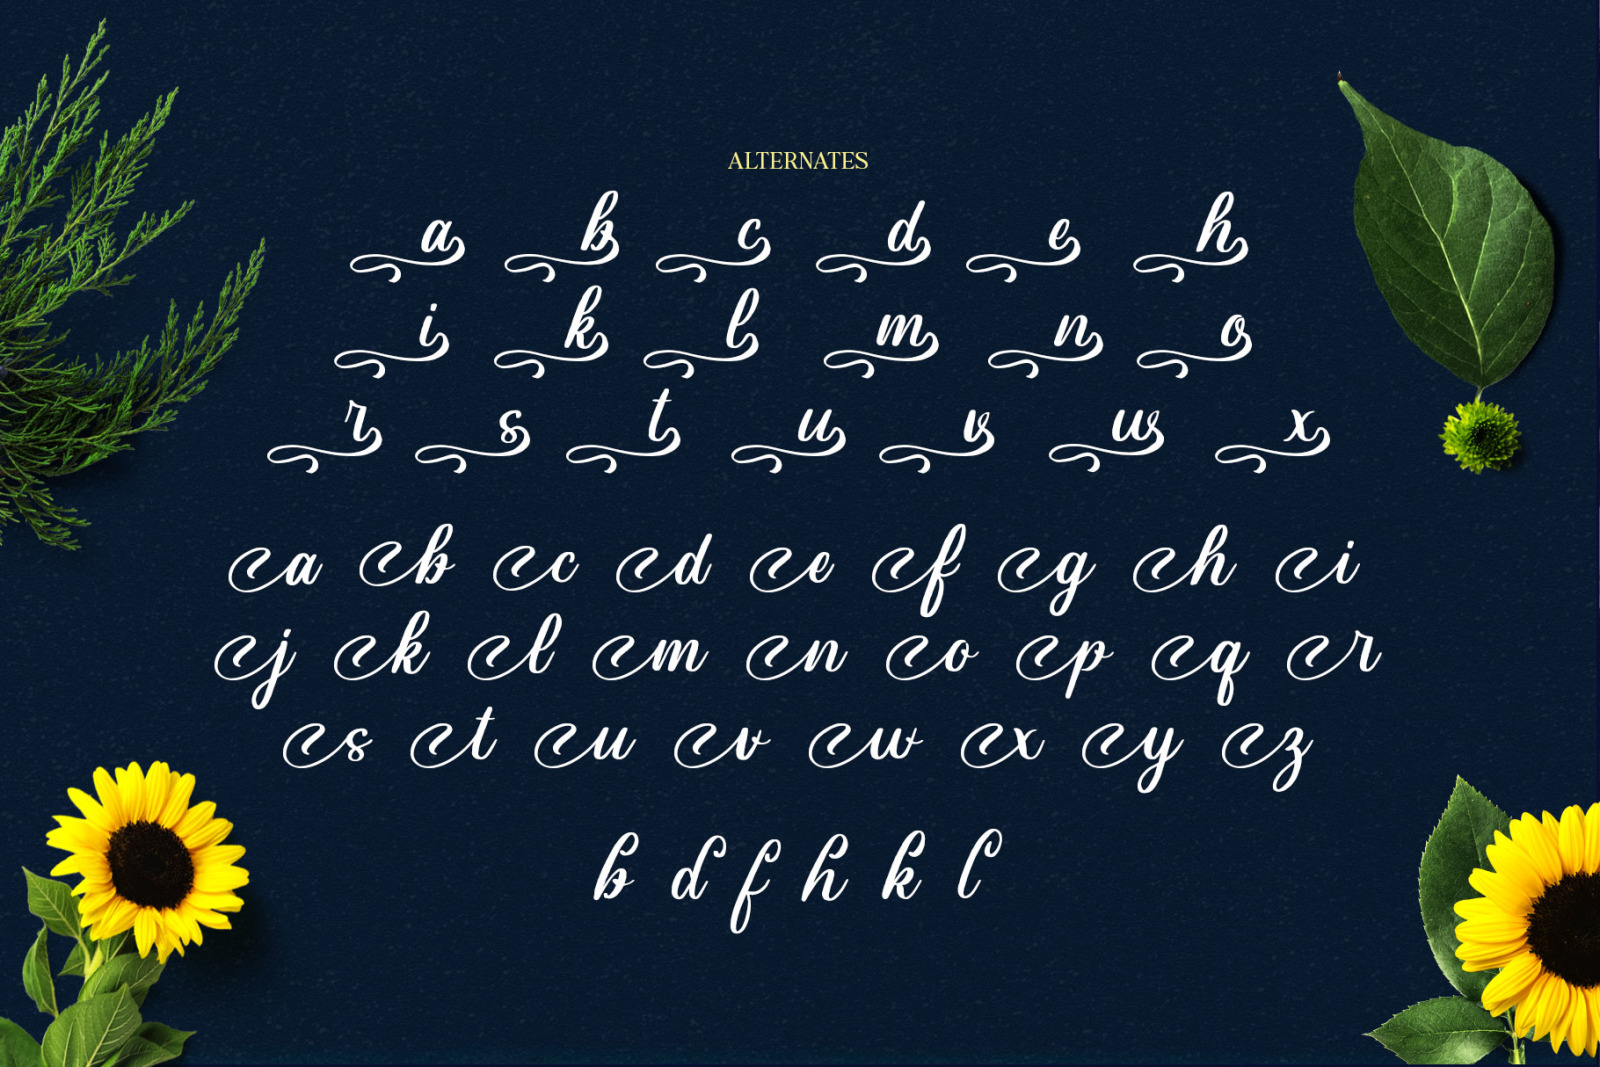 ALTERNATES
a b c d e h
i k l m n o
r s t u v w x
a b c d e f g h i
j k l m n o p q r
s t u v w x y z
b d f h k l